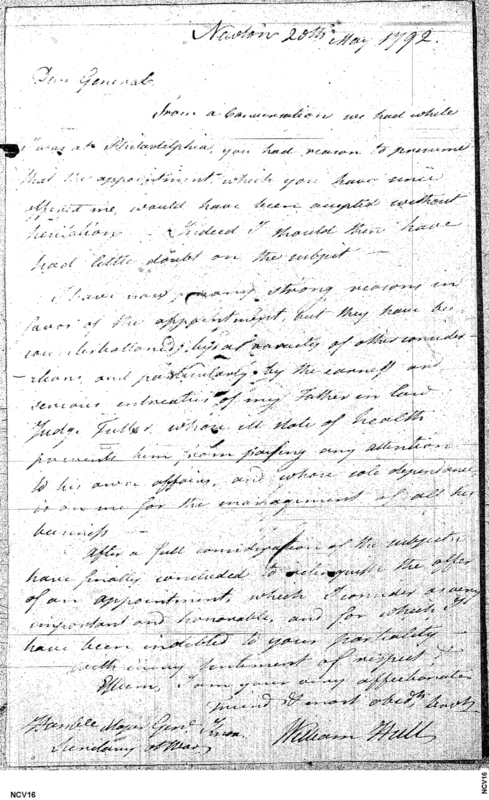 Newton 20th May 1792.
Dear General
From a Conversation we had while
I was at Philadelphia, you had reason to presume
that the appointment, which you have since
offered me, would have been accepted without
hesitation — Indeed I should then have
had little doubt on the subject —
I have now many strong reasons in
favor of the appointment, but they have been
counterballanced, by a variety of other considera
-tions, and particularly by the earnest and
serious intreaties of my Father in law
Judge Fuller, whose ill state of health
prevents him from paying any attention
to his own affairs, and whose sole dependance
is on me for the management of all his
business —
After a full consideration of the subject I
have finally concluded to relinquish the offer
of an appointment, which I consider as very
important and honorable, and for which I
have been indebted to your partiality —
With every sentiment of respect &
Esteem, I am your very affectionate
friend & most obedt. Servt.
William Hull
Honble Major Genl. Knox
Secretary at War
NCV16
NCV16